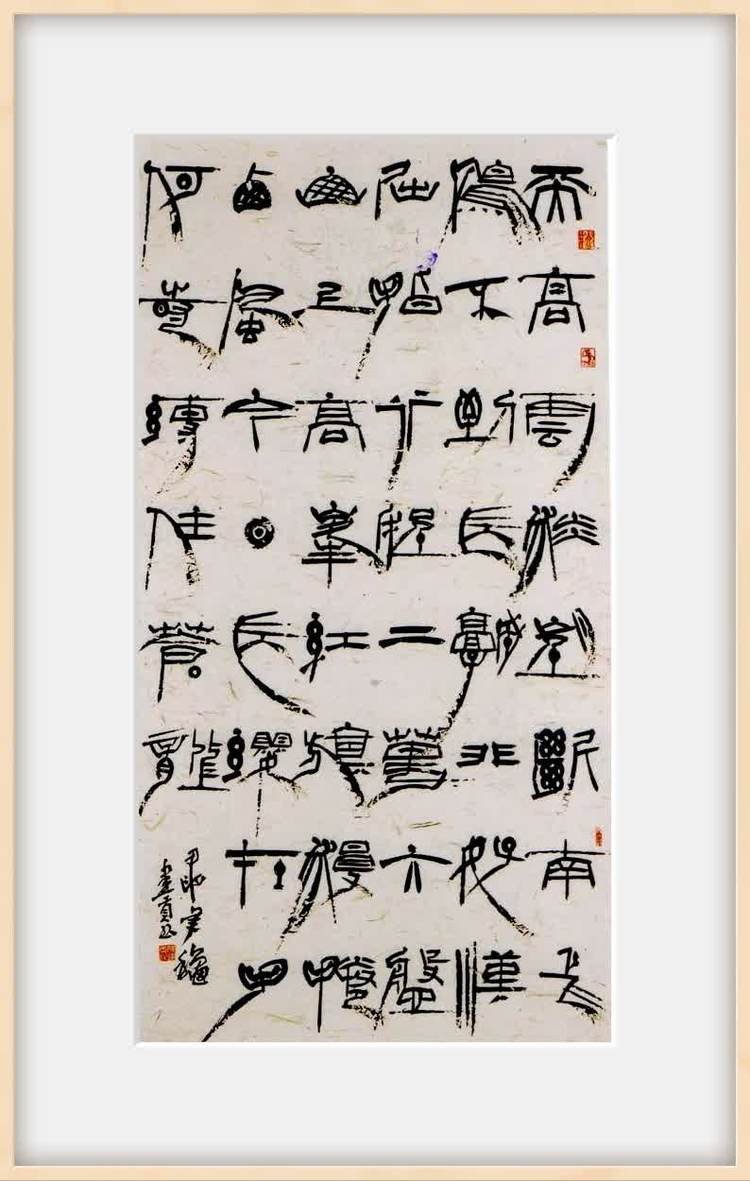 天高雲淡望斷南飛
雁不到長城非好漢
屈指行程二萬六盤
山上高峯紅旗漫捲
西風今日長纓在手
何時縛住蒼龍